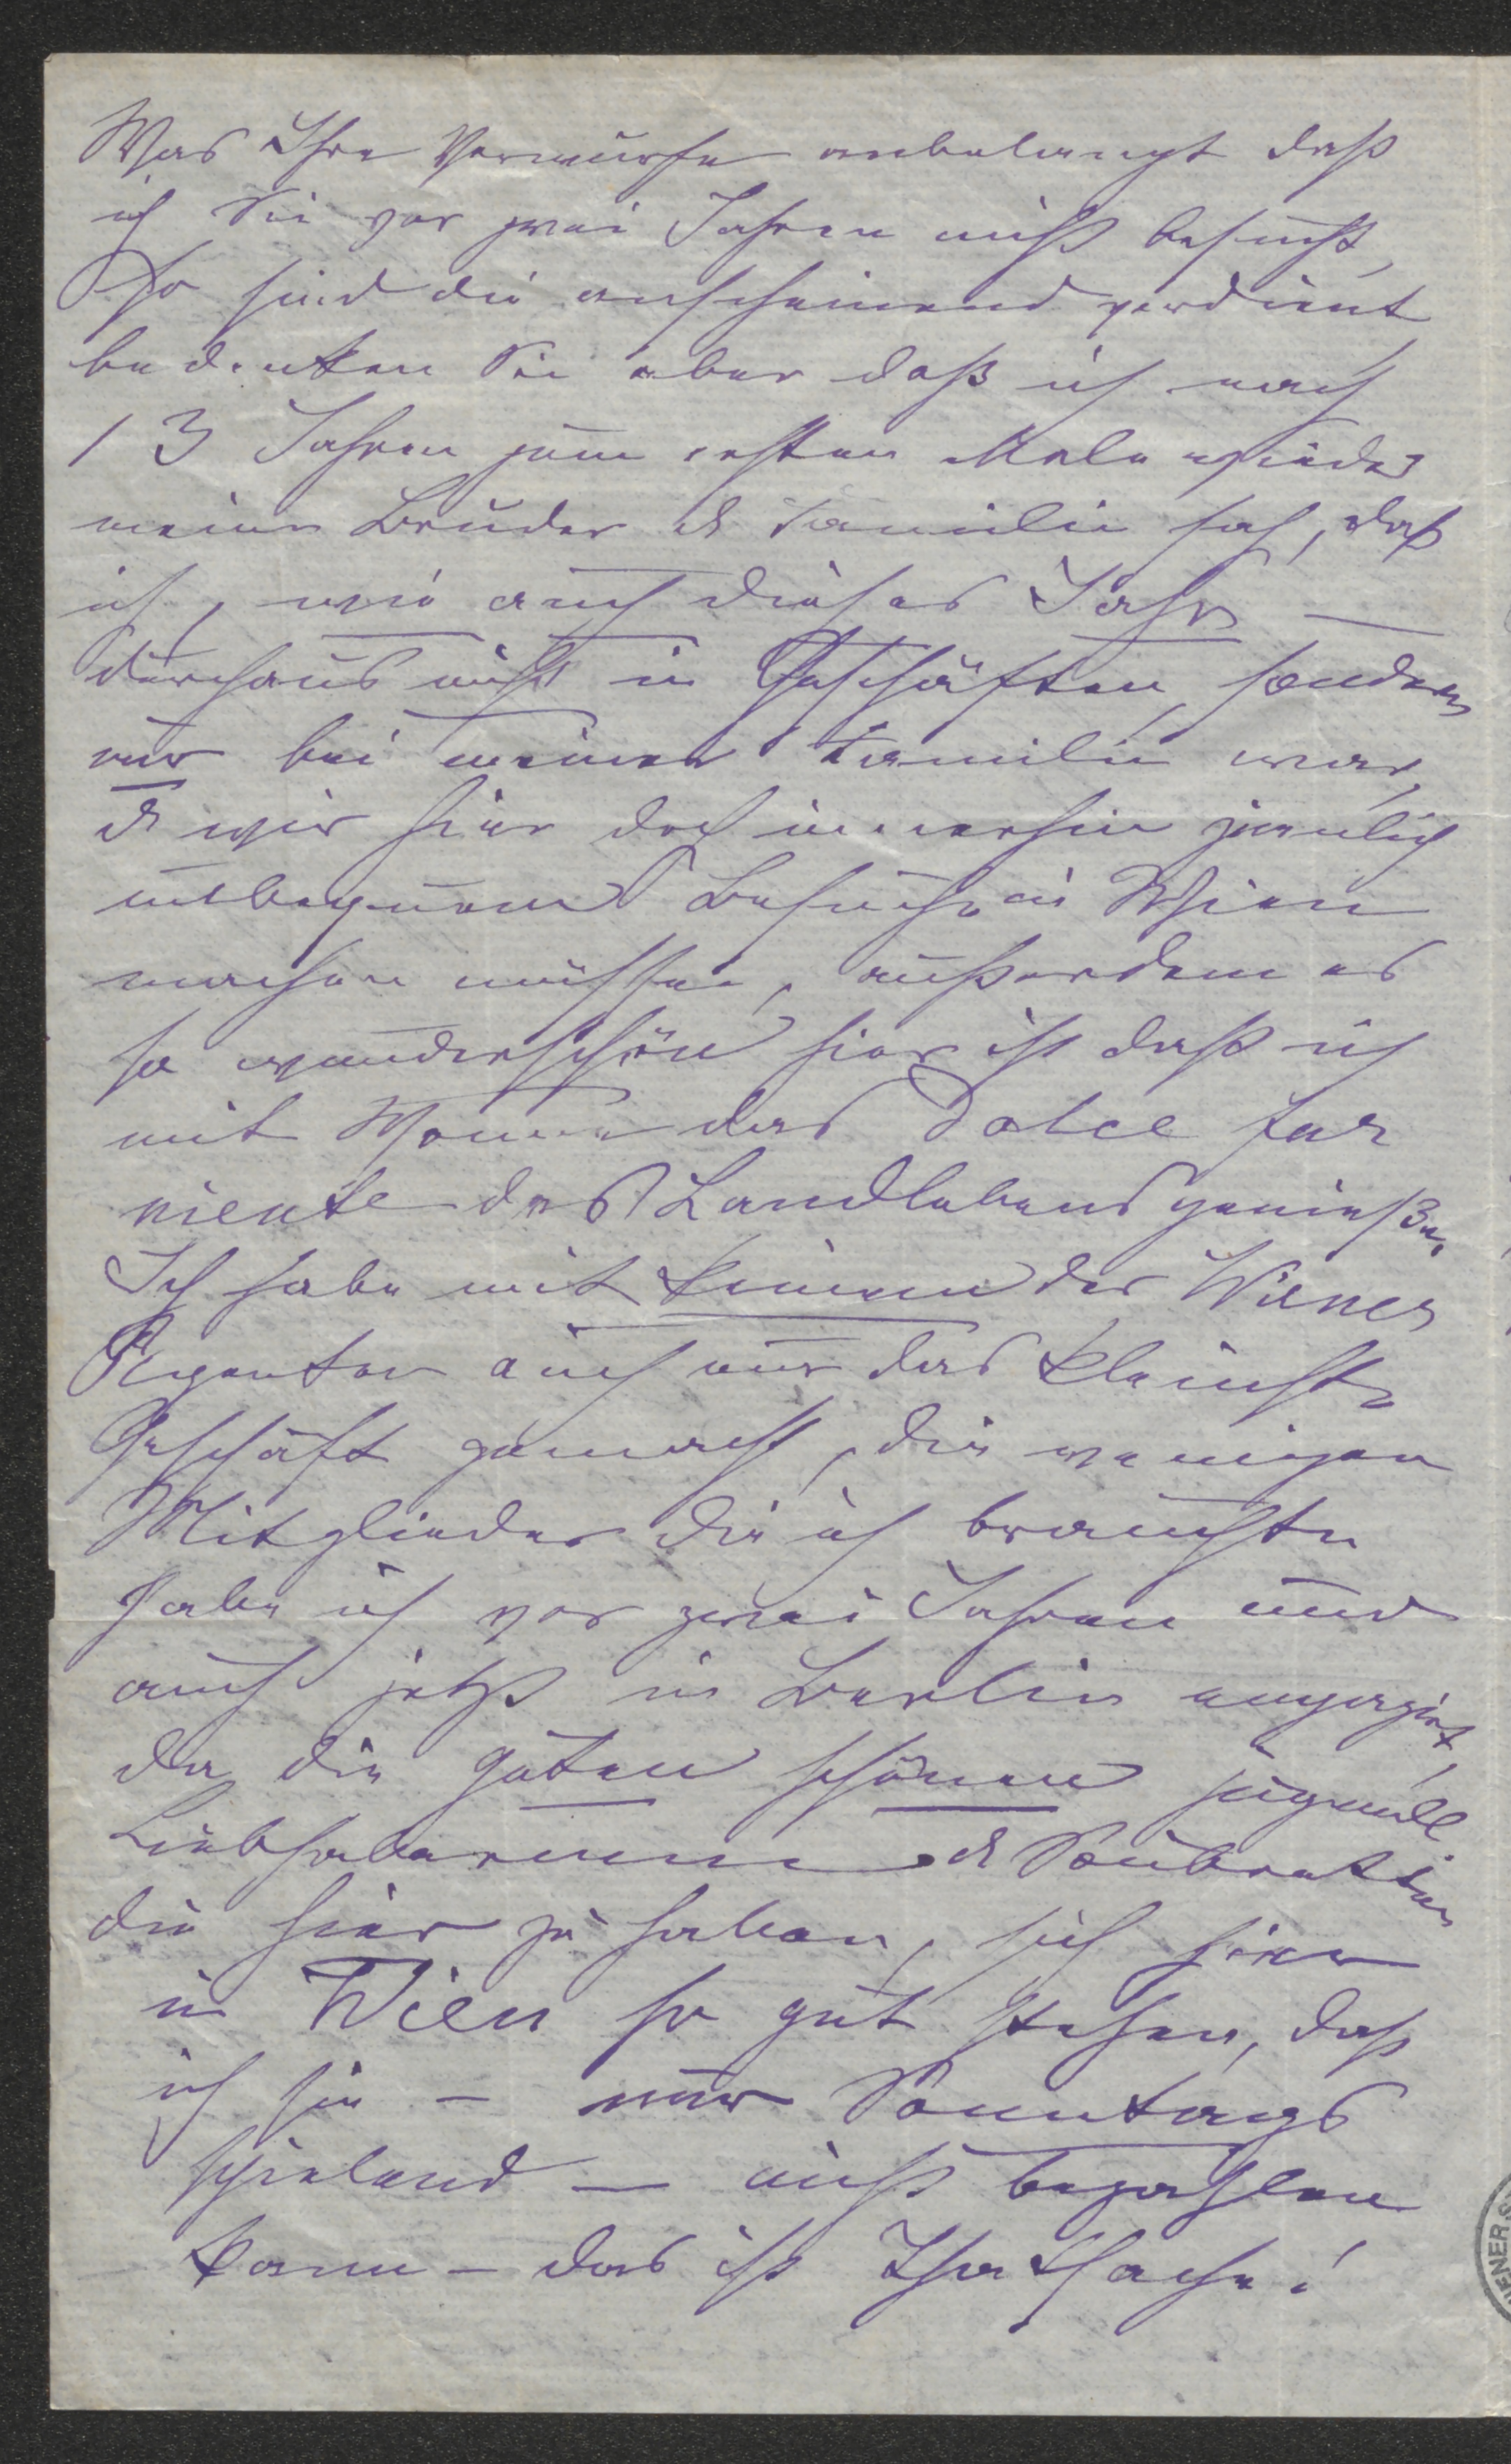 Was Ihre Vorwürfe anbelangt daß
ich Sie vor zwei Jahren nicht besucht,
so sind die anscheinend verdient
bedenken Sie aber daß ich nach
13 Jahren zum ersten Male wieder
meine Brüder & Familie sah, daß
ich, wie auch dieses Jahr –
durchaus nicht in Geschäften, sondern
nur bei meiner Familie war,
& wir hier doch immerhin ziemlich
unbequem Besuche in Wien
machen müssen, außerdem es
so wunderschön hier ist daß ich
mit Wonne das Dolce far
niente des Landlebens genieße.
Ich habe mit keinem der Wiener
Agenten auch nur das kleinste
Geschäft gemacht, die wenigen
Mitglieder die ich brauchte
habe ich vor zwei Jahren und
auch jetzt in Berlin engagirt,
da die guten schönen jugendl
Liebhaberinnen & Soubretten
die hier zu haben, sich hier
in Wien so gut stehen, daß
ich sie – nur Sonntags
spielend – nicht bezahlen
kann – das ist Thatsache!